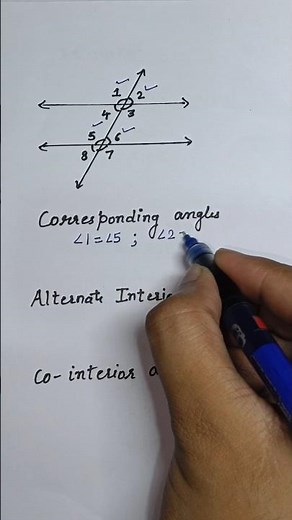 1 2
4 3
5 6
8 7
Corresponding angles
∠1=∠5 ; ∠2=
Alternate
Co-interior